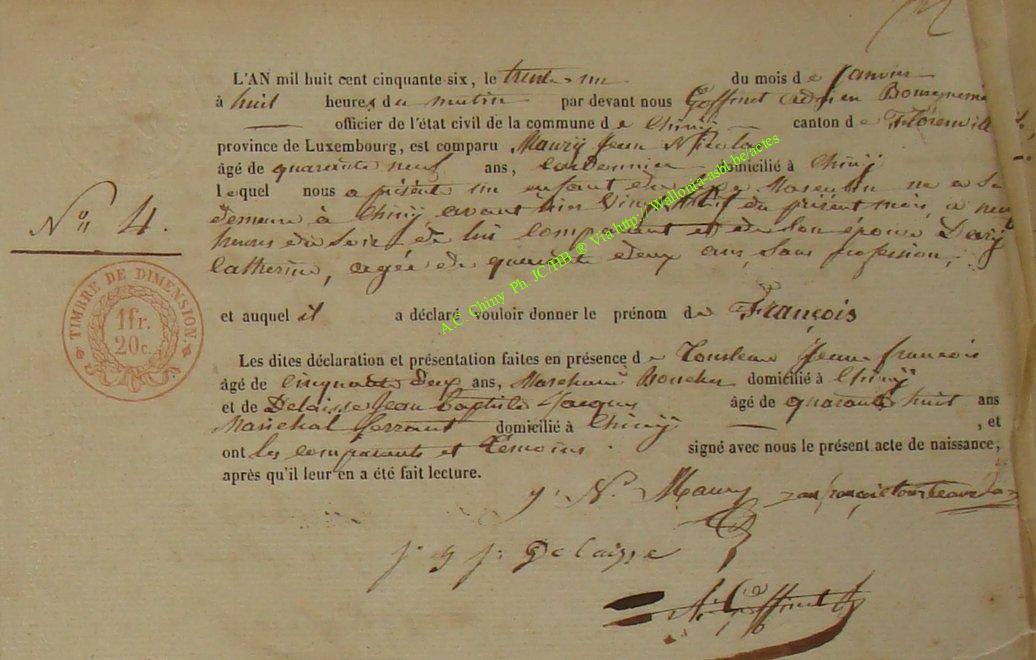 L'AN mil huit cent cinquante-six, le trente un du mois de Janvier
à huit heures du matin par devant nous Goffinet Adrien Bourgmestre
officier de l'état civil de la commune de Chiny canton de Florenville
province de Luxembourg, est comparu Maury Jean Nicolas
âgé de quarante neuf ans, cordonnier domicilié à Chiny
lequel nous a présenté un enfant du sexe Masculin né en sa
demeure à Chiny avant hier vingt neuf du présent mois, à neuf
heures du soir de lui comparant et de son épouse
Catherine, agée de quarante deux ans, sans profession,
N° 4.
TIMBRE DE DIMENSION
1fr.
20c.
et auquel il a déclaré vouloir donner le prénom de François
Les dites déclaration et présentation faites en présence de Tourteau Jean françois
âgé de Cinquante Deux ans, Marchand Boucher domicilié à Chiny
et de Delaisse Jean Baptiste Jacques âgé de quarante huit ans
Maréchal ferrant domicilié à Chiny , et
ont les comparants et témoins signé avec nous le présent acte de naissance,
après qu'il leur en a été fait lecture.
j. N. Maury Jean françois tourteau
j. b j. Delaisse
A. Goffinet
A.C. Chiny Ph. JC/HB ® Via http://Wallonia-asbl.be/actes